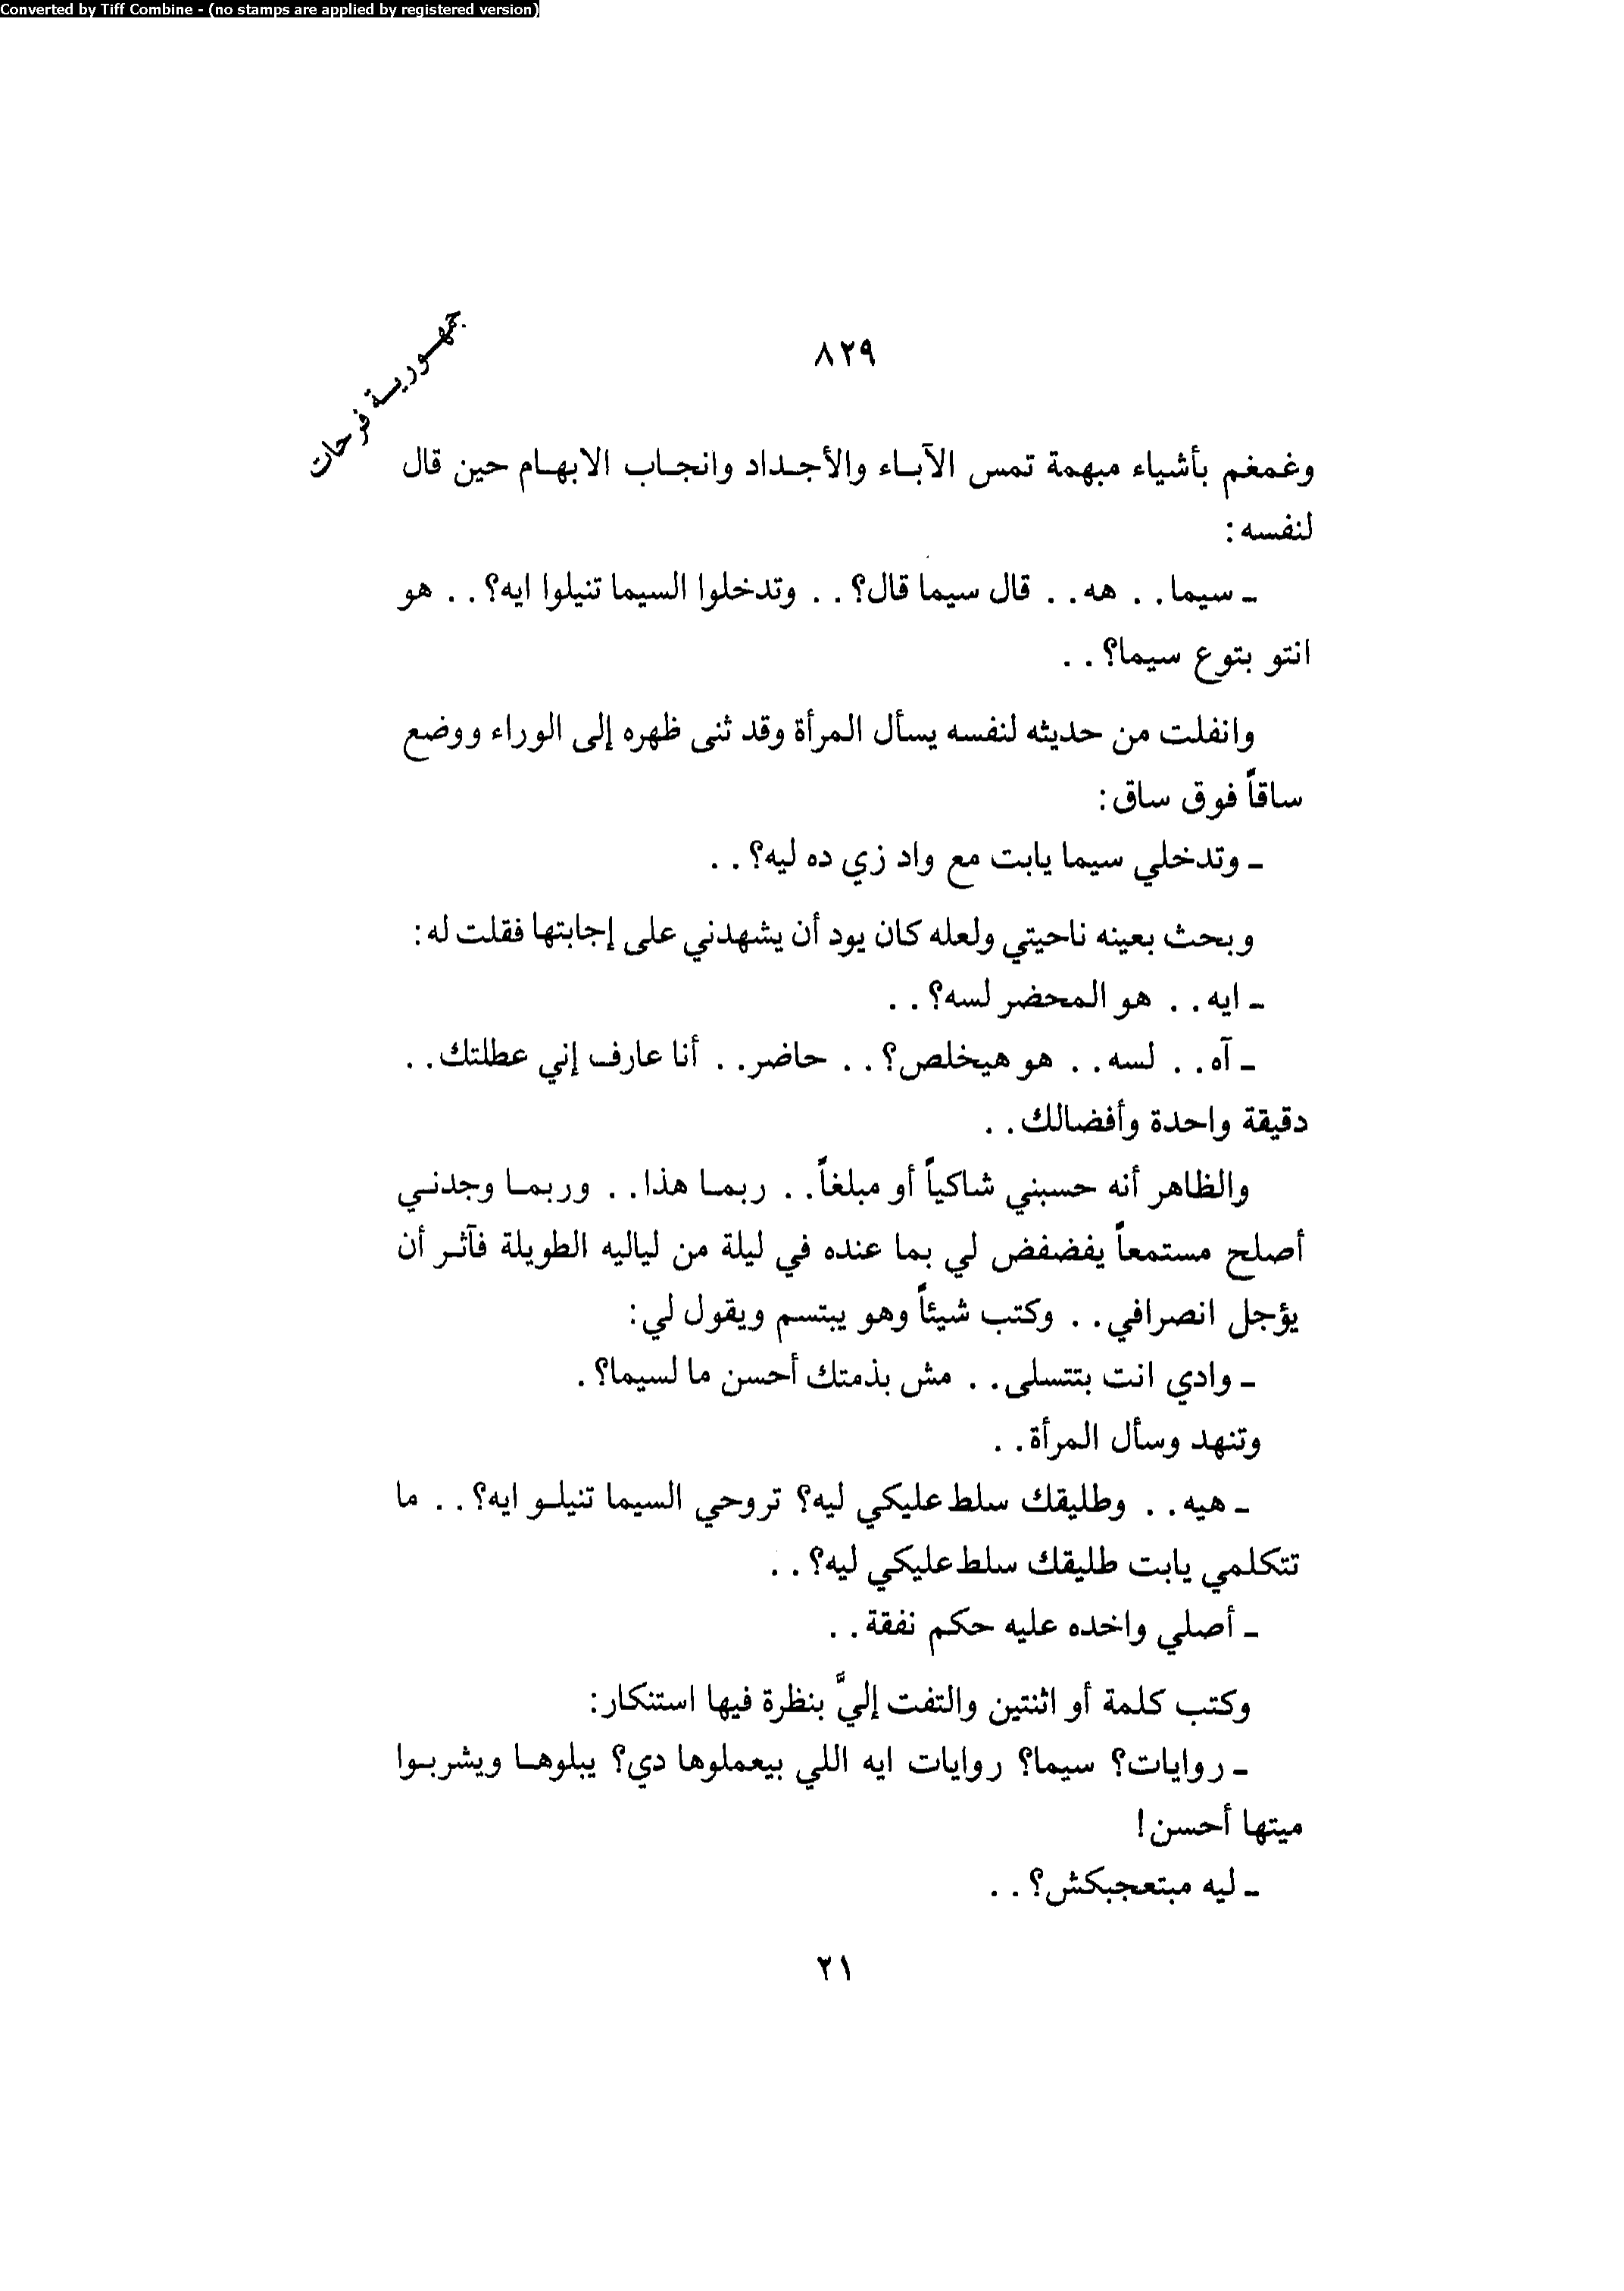 Converted by Tiff Combine - (no stamps are applied by registered version)
جمهورية فرحات
٨٢٩
وغمغم بأشياء مبهمة تمس الآباء والأجداد وانجاب الابهام حين قال
لنفسه:
ـ سيما.. هه.. قال سيما قال؟.. وتدخلوا السيما تنيلوا ايه؟.. هو
انتو بتوع سيما؟..
وانفلت من حديثه لنفسه يسأل المرأة وقد ثنى ظهره إلى الوراء ووضع
ساقاً فوق ساق:
ـ وتدخلي سيما يابت مع واد زي ده ليه؟..
وبحث بعينه ناحيتي ولعله كان يود أن يشهدني على إجابتها فقلت له:
ـ ايه.. هو المحضر لسه؟..
ـ آه.. لسه.. هو هيخلص؟.. حاضر.. أنا عارف إني عطلتك..
دقيقة واحدة وأفضالك..
والظاهر أنه حسبني شاكياً أو مبلغاً.. ربما هذا.. وربما وجدني
أصلح مستمعاً يفضفض لي بما عنده في ليلة من لياليه الطويلة فآثر أن
يؤجل انصرافي.. وكتب شيئاً وهو يبتسم ويقول لي:
ـ وادي انت بتتسلى.. مش بذمتك أحسن ما لسيما؟.
وتنهد وسأل المرأة..
ـ هيه.. وطليقك سلط عليكي ليه؟ تروحي السيما تنيلو ايه؟.. ما
تتكلمي يابت طليقك سلط عليكي ليه؟..
ـ أصلي واخده عليه حكم نفقة..
وكتب كلمة أو اثنتين والتفت إليَّ بنظرة فيها استنكار:
ـ روايات؟ سيما؟ روايات ايه اللي بيعملوها دي؟ يبلوها ويشربوا
ميتها أحسن!
ـ ليه مبتعجبكش؟..
٢١